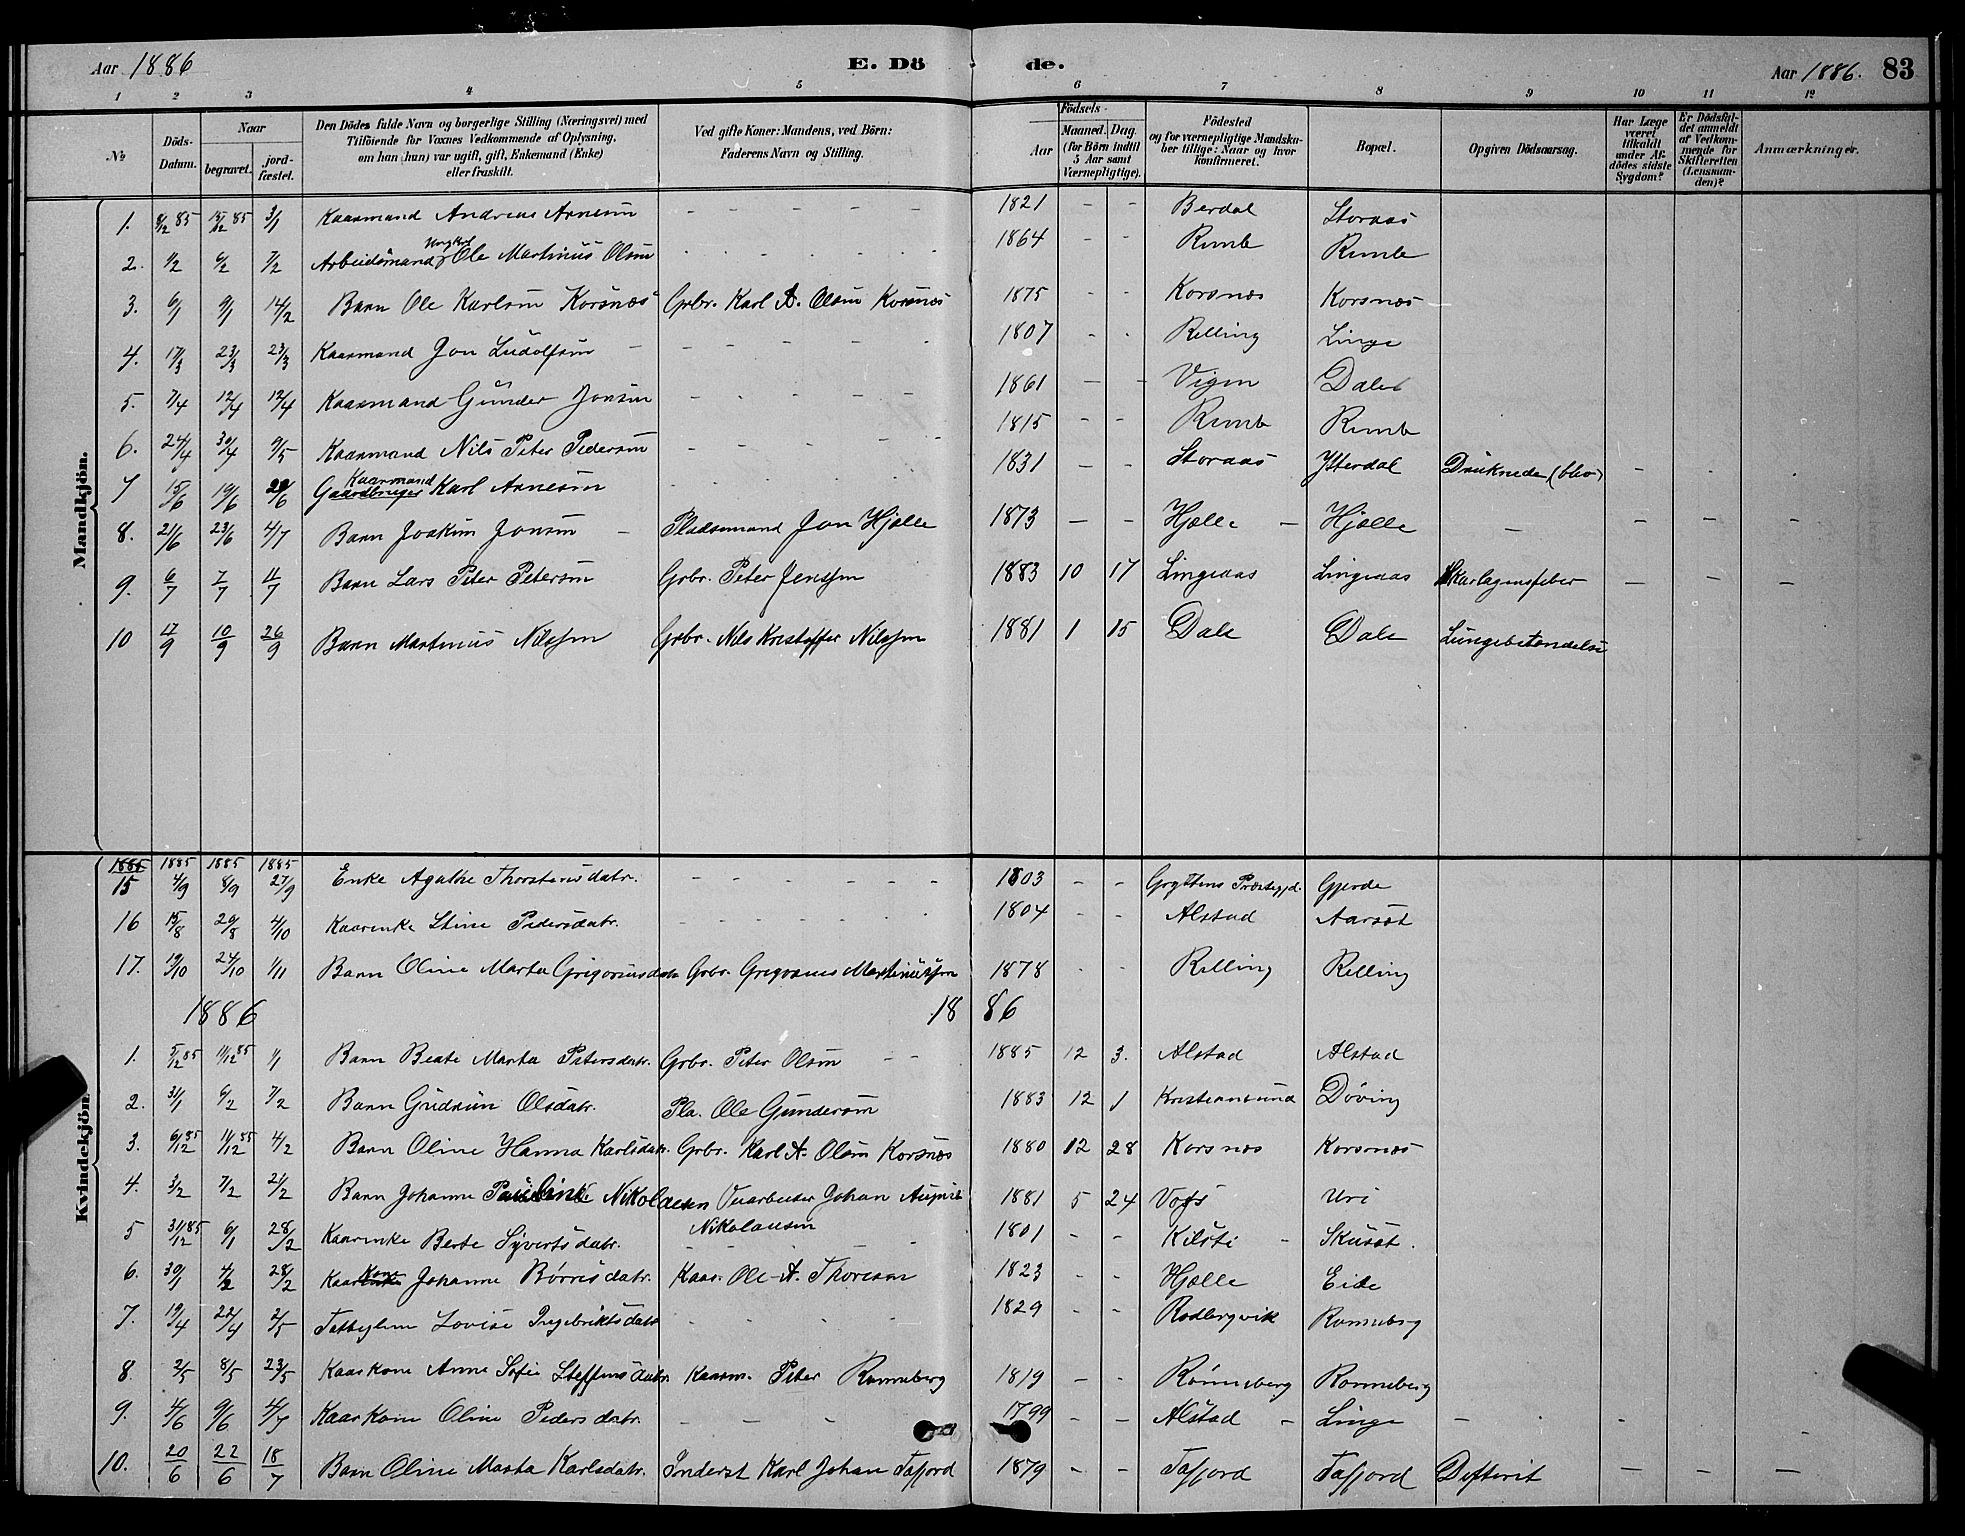 Aar 1886 E. Dö de. Aar 1886. 83
1 2 3 4 5 6 7 8 9 10 11 12
№
Döds-Datum.
Naar begravet. jordfæstet.
Den Dödes fulde Navn og borgerlige Stilling (Næringsvei) med Tilföiende for Voxnes Vedkommende af Oplysning, om han (hun) var ugift, gift, Enkemand (Enke) eller fraskilt.
Ved gifte Koner: Mandens, ved Börn: Faderens Navn og Stilling.
Födsels- Aar Maaned. Dag. (for Börn indtil 5 Aar samt Værnepligtige).
Födested og for værnepligtige Mandskaber tillige: Naar og hvor konfirmeret.
Bopæl.
Opgiven Dödsaarsag.
Har Læge været tilkaldt under Afdödes sidste Sygdom?
Er Dödsfaldet anmeldt af Vedkommende for Skifteretten (Lensmanden)?
Anmærkninger.
Mandkjön.
1. 8/12 85 13/12 85 3/1 Kaarmand Andreas Arnesen - - - - - 1821 - - Berdal Storaas
2. 1/2 6/2 7/2 Arbeidsmand Ungkal Ole Martinus Olsen 1864 - - Rimle Rimle
3. 6/1 9/1 14/2 Barn Ole Karlsen Korsnæs Grbr. Karl A. Olsen Korsnæs 1875 - - Korsnæs Korsnæs
4. 17/3 23/3 23/3 Kaarmand Jon Ludolfsen - - - - 1807 - - Relling Linge
5. 7/4 12/4 12/4 Kaarmand Gunder Jonsen - - - - - 1861 - - Vigen Dale
6. 24/4 30/4 9/5 Kaarmand Nils Peter Pedersen - - - - - 1815 - - Rimle Rimle
7 15/6 19/6 29/6 Gaardbruger Kaarmand Karl Arnesen 1831 - - Storaas Ytterdal Druknede (blev) - - -
8. 21/6 23/6 4/7 Barn Joakim Jonsen - Pladsemand Jon Hjelle 1873 - - Hjelle - Hjelle - - - -
9. 6/7 7/7 11/7 Barn Lars Peter Petersen Grbr. Peter Jenssen 1883 10 17 Lingeaas Lingeaas Skarlagensfeber - - -
10 17/9 10/9 26/9 Barn Martinus Nilssen Grbr. Nils Kristoffer Nilssen 1881 1 15 Dale Dale Lungebetændelse
Kvindekjön.
1885 1885 1885 1885
15 4/9 8/9 27/9 Enke Agathe Thorstensdatr. - - - - - - 1803 - - Gryttens Præstegjd. Gjerde
16 15/8 20/8 4/10 Kaarenke Stine Pedersdatr. - - - - - 1804 - - Alstad Aarsæt
17. 19/10 24/10 1/11 Barn Oline Marta Grigoriusdatr Grbr. Gregorius Martinussen 1878 - - Relling Relling
1886 18 86
1. 5/12 85 11/12 85 1/1 Barn Beate Marta Petersdatr. Grbr. Peter Olsen - - 1885 12 3. Alstad Alstad
2. 31/1 6/2 7/2 Barn Gudrun Olsdatr. Pla. Ole Gundersen 1883 12 1 Kristiansund Döving
3. 6/12 85 11/12 85 4/2 Barn Oline Hanna Karlsdatr. Grbr. Karl A. Olsen Korsnæs 1880 12 28 Korsnæs Korsnæs
4. 3/2 7/2 21/2 Barn Johanne Pauline Nikolaesen Johan Nikolausen 1881 5 24 Uri
5 31/12 85 6/1 28/2 Kaarenke Berte Syvertsdatr. - - - 1801 - - Kilsti - Skusæt.
6. 30/1 4/2 28/2 Kaarkone Johanne Börresdatr. Kaar. Ole A. Thoresen 1823 - - Hjelle Eide
7. 19/4 22/4 2/5 Fattiglem Lovise Ingebriktsdatr - - - - 1829 - - Rødbergvik Ronneberg
8. 2/5 8/5 23/5 Kaarkone Anne Sofie Steffensdatr. Kaarm. Peter Ronneberg 1819 - - Rönneberg Ronneberg
9. 4/6 9/6 4/7 Kaarkone Oline Pedersdatr. - - - 1799 - - Alstad - Linge - - -
10. 20/6 22/6 18/7 Barn Oline Marta Karlsdatr. Inderst Karl Johan Tafjord 1879 - - Tafjord Tafjord Defterit - - -